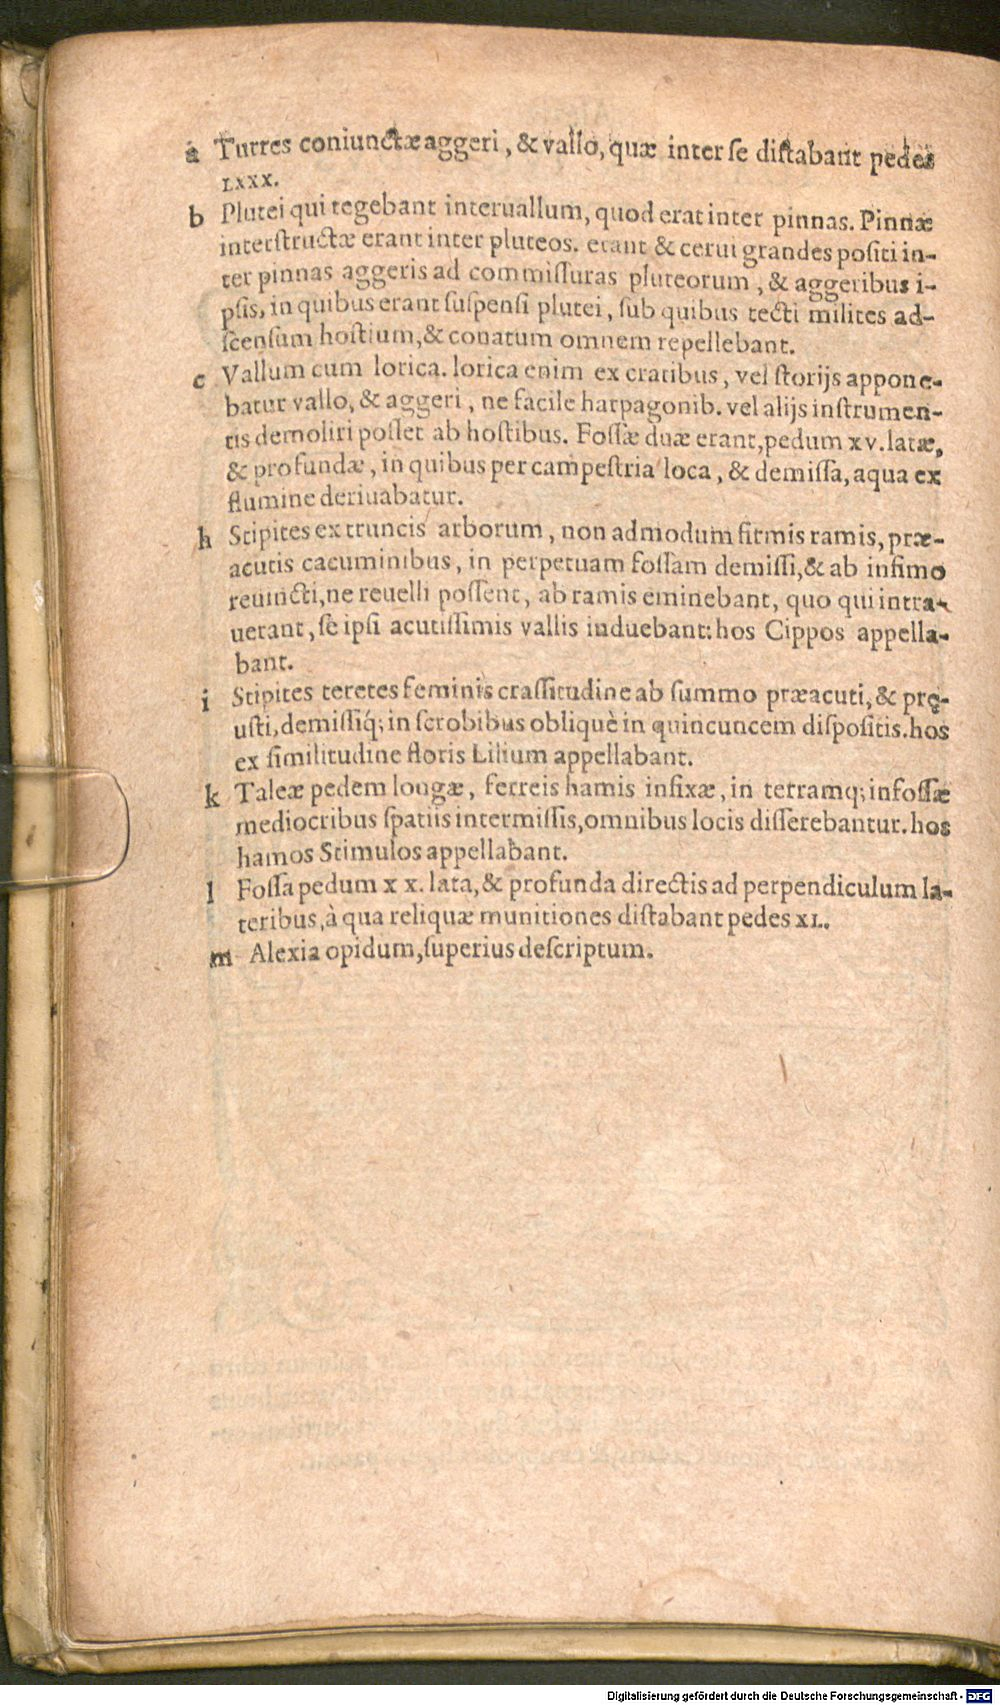 a Turres coniunctæ aggeri, & vallo, quæ inter se distabant pedes
LXXX.
b Plutei qui tegebant interuallum, quod erat inter pinnas. Pinnæ
interstructæ erant inter pluteos. erant & cerui grandes positi in-
ter pinnas aggeris ad commissuras pluteorum, & aggeribus i-
psis, in quibus erant suspensi plutei, sub quibus tecti milites ad-
scensum hostium, & conatum omnem repellebant.
c Vallum cum lorica. lorica enim ex cratibus, vel storijs appone-
batur vallo, & aggeri, ne facile harpagonib. vel alijs instrumen-
tis demoliri posset ab hostibus. Fossæ duæ erant, pedum xv. latæ,
& profundæ, in quibus per campestria loca, & demissa, aqua ex
flumine deriuabatur.
h Stipites ex truncis arborum, non admodum firmis ramis, præ-
acutis cacuminibus, in perpetuam fossam demissi, & ab infimo
reuincti, ne reuelli possent, ab ramis eminebant, quo qui intra-
uerant, se ipsi acutissimis vallis induebant: hos Cippos appella-
bant.
i Stipites teretes feminis crassitudine ab summo præacuti, & prę-
usti, demissiq́; in scrobibus obliquè in quincuncem dispositis. hos
ex similitudine floris Lilium appellabant.
k Taleæ pedem longæ, ferreis hamis infixæ, in terramq; infossæ
mediocribus spatiis intermissis, omnibus locis disserebantur. hos
hamos Stimulos appellabant.
l Fossa pedum xx. lata, & profunda directis ad perpendiculum la-
teribus, à qua reliquæ munitiones distabant pedes XL.
m Alexia opidum, superius descriptum.
Digitalisierung gefördert durch die Deutsche Forschungsgemeinschaft - DFG